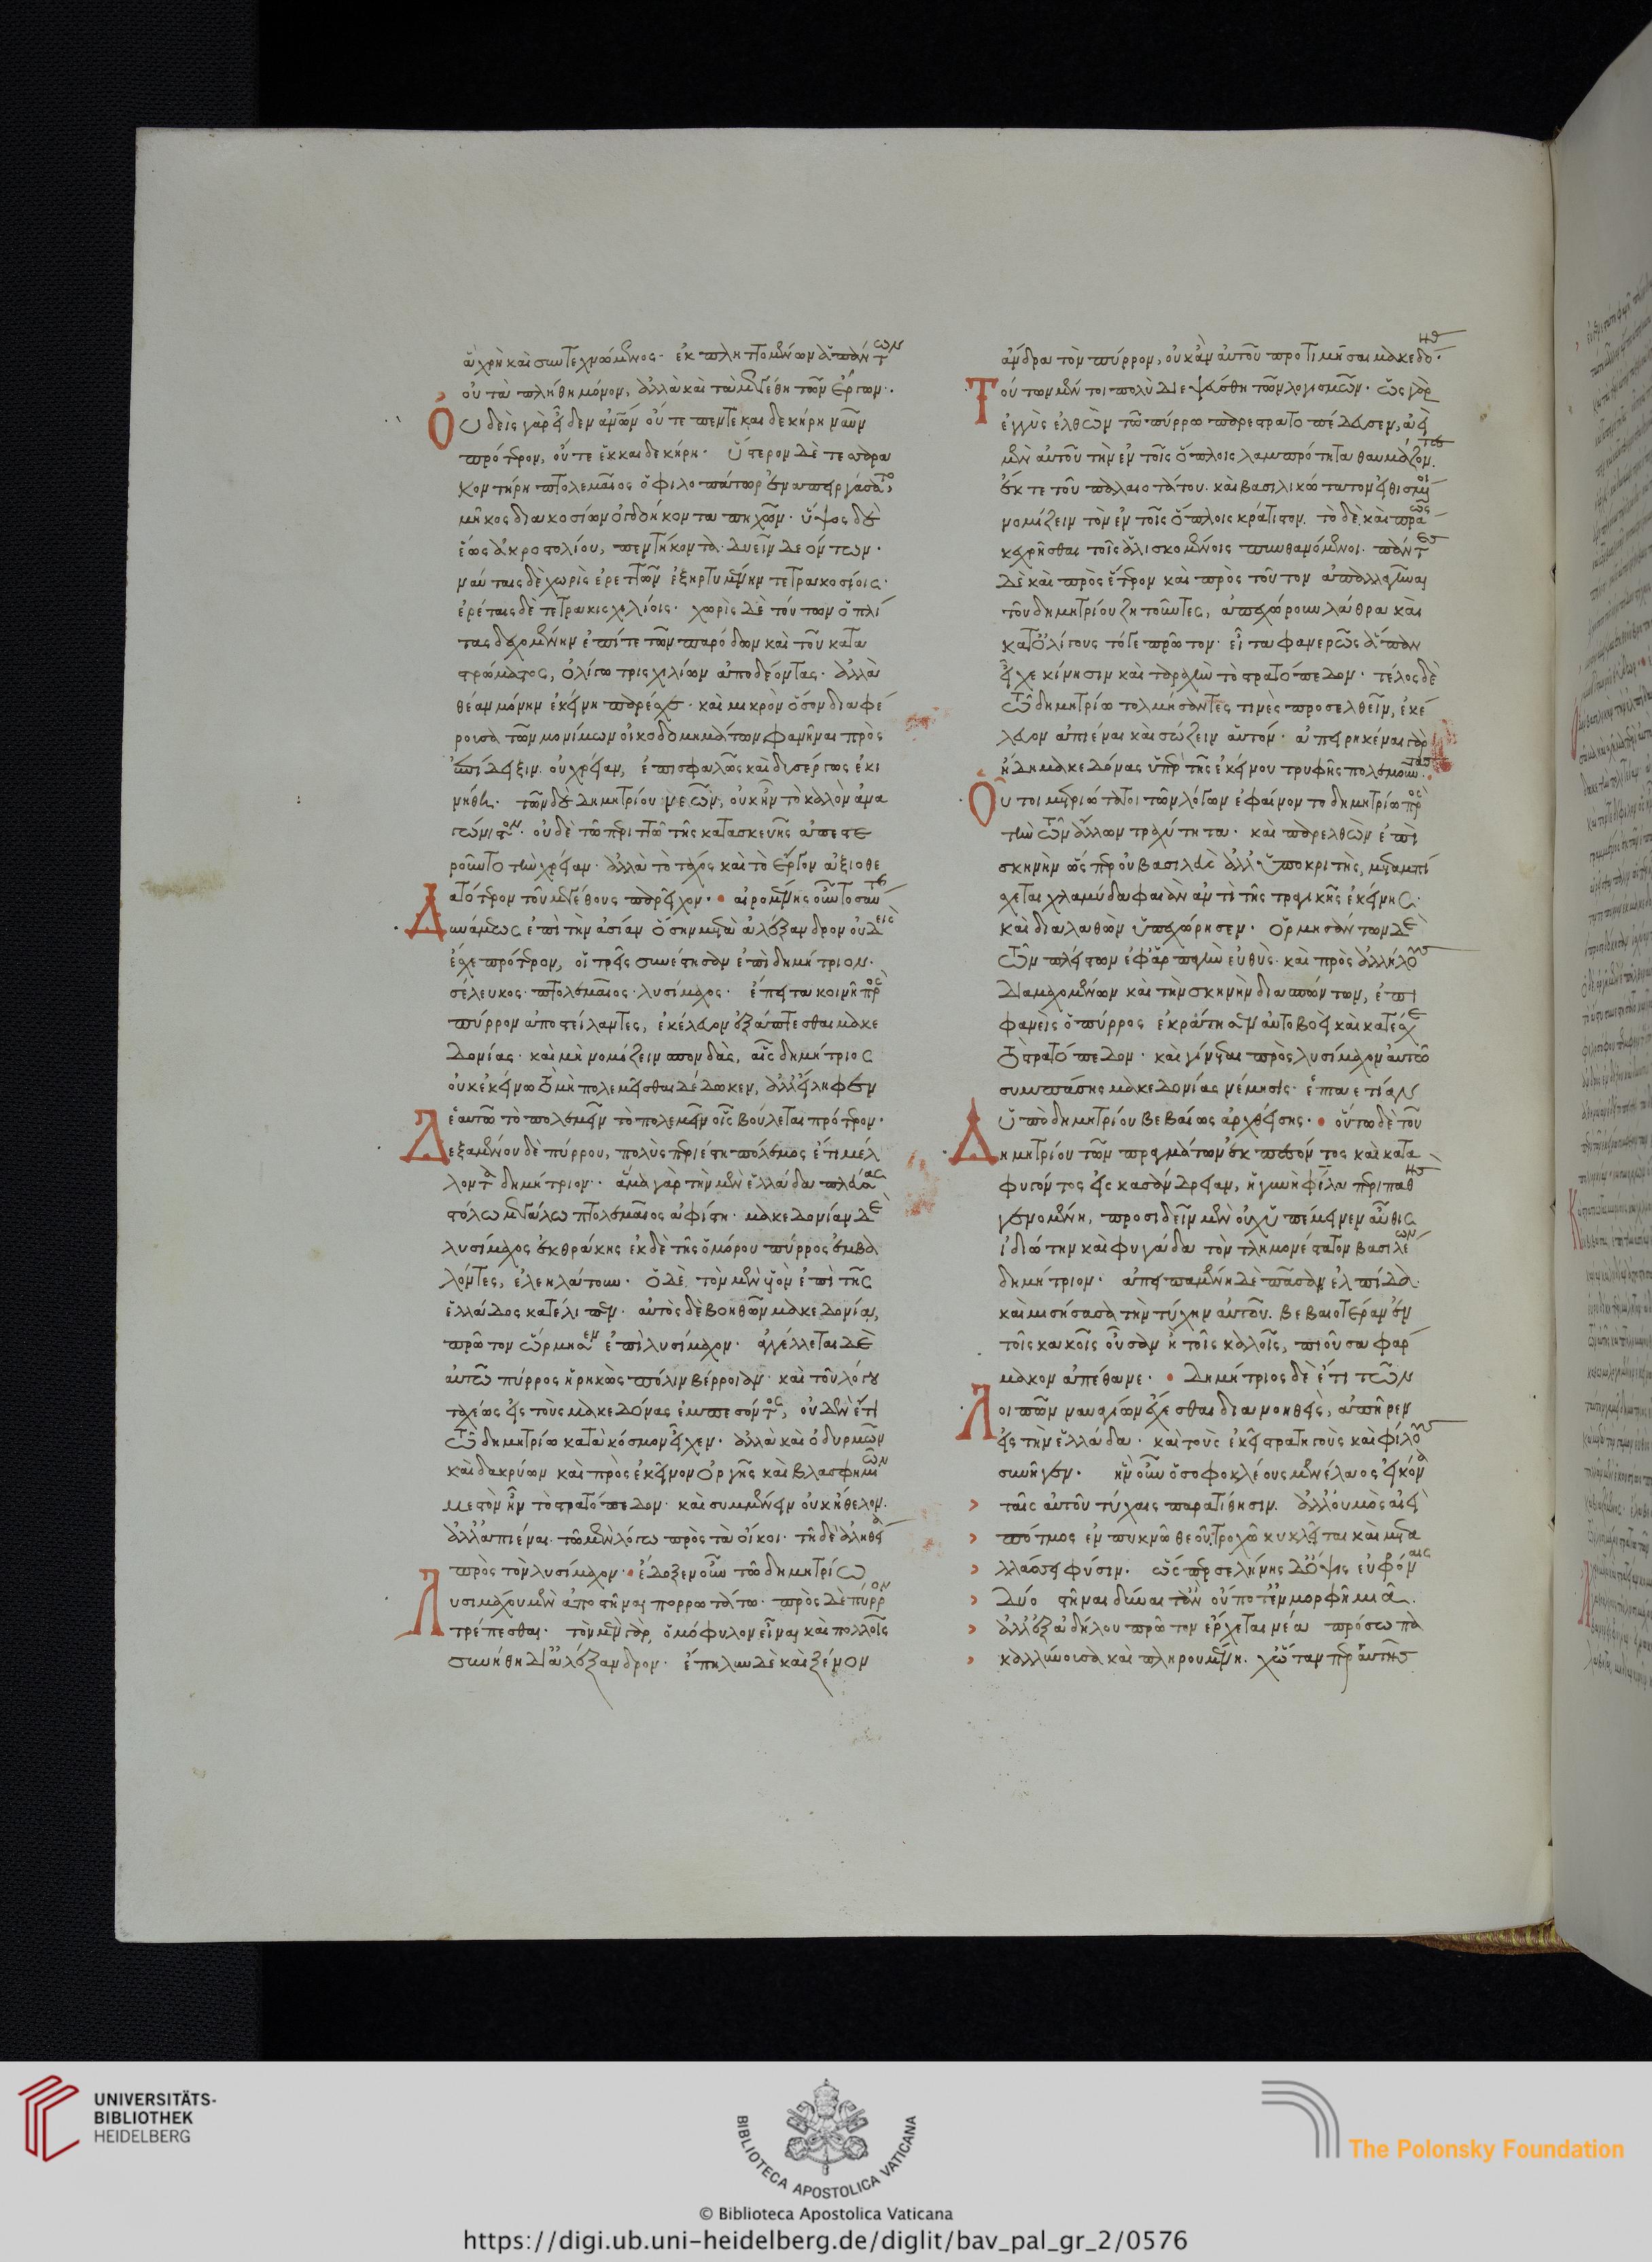 ἃ χρὴ καὶ συντεχνώμενος· ἐκπληττομένων ἁπάντων
οὐ τὰ πλήθη μόνον, ἀλλὰ καὶ τὰ μεγέθη τῶν ἔργων·
Οὐδεὶς γὰρ εἶδεν ἀνῶν οὔτε πεντεκαιδεκήρη ναῦν
πρότερον, οὔτε ἑκκαιδεκήρη· ὕστερον δὲ τεσσαρα
κοντήρη πτολεμαῖος ὁ φιλοπάτωρ
μῆκος διακοσίων ὀγδοήκοντα πηχῶν· ὕψος δὲ
ἕως ἀκροστολίου, πεντήκοντα δυεῖν δεόντων·
ναύταις δὲ χωρὶς ἐρετῶν ἐξηρτυμένην τετρακοσίοις·
ἐρέταις δὲ τετρακισχιλίοις· χωρὶς δὲ τούτων ὁπλί
τας δεχομένην ἐπί τε τῶν παρόδων καὶ τοῦ κατα
στρώματος, ὀλίγω τρισχιλίων ἀποδέοντας· ἀλλὰ
θέαν μόνην ἐκείνη παρέσχε· καὶ μικρὸν ὅσον διαφέ
ρουσα τῶν μονίμων οἰκοδομημάτων φανῆναι πρὸς
ἐπίδειξιν οὐ χρείαν, ἐπισφαλῶς καὶ δυσέργως ἐκι
νήθη· τῶν δὲ δημητρίου νεῶν, οὐκ ἦν τὸ καλὸν ἀνα
γώνιστον· οὐδὲ τῶ περιττῶ τῆς κατασκευῆς ἀπεστε
ροῦντο τὴν χρείαν· ἀλλὰ τὸ τάχος καὶ τὸ ἔργον ἀξιοθε
ατότερον τοῦ μεγέθους παρεῖχον· αἰρομένης οὖν τοσαύτης
Δυνάμεως ἐπὶ τὴν ἀσίαν ὅσην μετὰ ἀλέξανδρον οὐδεὶς
ἔσχε πρότερον, οἱ τρεῖς συνέστησαν ἐπὶ δημήτριον·
σέλευκος· πτολεμαῖος· λυσίμαχος· ἔπειτα κοινῆ πρὸς
πύρρον ἀποστείλαντες, ἐκέλευον ἐξάπτεσθαι μακε
δονίας· καὶ μὴ νομίζειν σπονδὰς, αἷς δημήτριος
οὐκ ἐκείνω τὸ μὴ πολεμεῖσθαι δέδωκεν, ἀλλ' εἴληφεν
ἑαυτῶ τὸ πολεμεῖν τὸ πολεμεῖν οἷς βούλεται πρότερον·
Δεξαμένου δὲ πύρρου, πολὺς περιέστη πόλεμος ἔτι μέλ
λοντα δημήτριον· ἅμα γὰρ τὴν μὲν ἑλλάδα πλεύσας
στόλω μεγάλω πτολεμαῖος ἀφίστη· μακεδονίαν δὲ
λυσίμαχος ἐκ θράκης ἐκ δὲ τῆς ὁμόρου πύρρος ἐμβα
λόντες, ἐλεηλάτουν· ὁ δὲ τὸν μὲν υἱὸν ἐπὶ τῆς
ἑλλάδος κατέλιπεν· αὐτὸς δὲ βοηθῶν μακεδονία,
πρῶτον ὥρμησεν ἐπὶ λυσίμαχον· ἀγγέλλεται δὲ
αὐτῶ πύρρος ἡρηκὼς πόλιν βέρροιαν· καὶ τοῦ λόγου
ταχέως εἰς τοὺς μακεδόνας ἐμπεσόντος, οὐδὲν ἔτι
τῶ δημητρίω κατὰ κόσμον εἶχεν· ἀλλὰ καὶ ὀδυρμῶν
καὶ δακρύων καὶ πρὸς ἐκεῖνον ὀργῆς καὶ βλασφημιῶν
μεστὸν ἦν τὸ στρατόπεδον· καὶ συμμένειν οὐκ ἤθελον·
ἀλλ' ἀπιέναι τῶ μὲν λόγω πρὸς τὰ οἴκοι· τῆ δὲ ἀληθεία
πρὸς τὸν λυσίμαχον· ἔδοξεν οὖν τῶ δημητρίω
Λυσιμάχου μὲν ἀποστῆναι πορρωτάτω· πρὸς δὲ πύρρον
τρέπεσθαι· τὸν μὲν γὰρ, ὁμόφυλον εἶναι καὶ πολλοῖς
συνήθη δι' ἀλέξανδρον· ἔπηλυν δὲ καὶ ξένον
ἄνδρα τὸν πύρρον, οὐκ ἂν αὐτοῦ προτιμῆσαι μακεδόνας·
Τούτων μέντοι πολὺ διεψεύσθη τῶν λογισμῶν· ὡς γὰρ
ἐγγὺς ἐλθὼν τῶ πύρρω παρεστρατοπέδευσεν, ἀεὶ
μὲν αὐτοῦ τὴν ἐν τοῖς ὅπλοις λαμπρότητα θαυμάζοντες
ἔκ τε τοῦ παλαιοτάτου καὶ βασιλικώτατον εἰθισμένοι
νομίζειν τὸν ἐν τοῖς ὅπλοις κράτιστον· τὸ δὲ καὶ πράως
κεχρῆσθαι τοῖς ἁλισκομένοις πυνθανόμενοι· πάντες
δὲ καὶ πρὸς ἕτερον καὶ πρὸς τοῦτον ἀπαλλαγῆναι
τοῦ δημητρίου ζητοῦντες, ἀπεχώρουν λάθρα καὶ
κατ' ὀλίγους τότε πρῶτον· εἶτα φανερῶς ἅπαν
εἶχε κίνησιν καὶ ταραχὴν τὸ στρατόπεδον· τέλος δὲ
τῶ δημητρίω τολμήσαντες τινὲς προσελθεῖν, ἐκέ
λευον ἀπιέναι καὶ σώζειν αὑτόν· ἀπειρηκέναι γὰρ
ἤδη μακεδόνας ὑπὲρ τῆς ἐκείνου τρυφῆς πολεμοῦντας·
Οὗτοι μετριώτατοι τῶν λόγων ἐφαίνοντο δημητρίω πρὸς
τὴν τῶν ἄλλων τραχύτητα· καὶ παρελθὼν ἐπὶ
σκηνὴν ὥσπερ οὐ βασιλεὺς ἀλλ' ὑποκριτὴς, μεταμπί
σχεται χλαμύδα φαιὰν ἀντὶ τῆς τραγικῆς ἐκείνης·
καὶ διαλαθὼν ὑπεχώρησεν· ὁρμησάντων δὲ
τῶν πλείστων ἐφ' ἁρπαγὴν εὐθὺς· καὶ πρὸς ἀλλήλους
διαμαχομένων καὶ τὴν σκηνὴν διασπώντων, ἐπι
φανεὶς ὁ πύρρος ἐκράτησεν αὐτοβοεὶ καὶ κατέσχε
τὸ στρατόπεδον· καὶ γίνεται πρὸς λυσίμαχον αὐτῶ
συμπάσης μακεδονίας νέμησις· ἑπταετίαν
ὑπὸ δημητρίου βεβαίως ἀρχθείσης· οὕτω δὲ τοῦ
Δημητρίου τῶν πραγμάτων ἐκπεσόντος καὶ κατα
φυγόντος εἰς κασάνδρειαν, ἡ γυνὴ φίλα περιπαθὴς
γενομένη, προσιδεῖν μὲν οὐχ' ὑπέμεινεν αὖθις
ἰδιώτην καὶ φυγάδα τὸν τλημονέστατον βασιλέων
δημήτριον· ἀπειπαμένη δὲ πᾶσαν ἐλπίδα·
καὶ μισήσασα τὴν τύχην αὐτοῦ βεβαιοτέραν ἐν
τοῖς κακοῖς οὖσαν ἢ τοῖς καλοῖς, πιοῦσα φάρ
μακον ἀπέθανε· Δημήτριος δὲ ἔτι τῶν
Λοιπῶν ναυαγίων ἔχεσθαι διανοηθεὶς, ἀπῆρεν
εἰς τὴν ἑλλάδα· καὶ τοὺς ἐκεῖ στρατηγοὺς καὶ φίλους
συνῆγεν· ἣν οὖν ὁ σοφοκλέους μενέλαος εἰκόνα
ταῖς αὑτοῦ τύχαις παρατίθησιν· ἀλλ' οὑμὸς αἰεὶ
πότμος ἐν πυκνῶ θεοῦ τροχῶ κυκλεῖται καὶ μετα
λλάσσει φύσιν· ὥσπερ σελήνης δ' ὄψις εὐφρόνας
δύο στῆναι δύναιτ' ἂν οὔποτ' ἐν μορφῆ μιᾶ·
ἀλλ' ἐξ ἀδήλου πρῶτον ἔρχεται νέα πρόσωπα
καλλύνουσα καὶ πληρουμένη· χὤταν περ αὑτῆς
UNIVERSITÄTS-
BIBLIOTHEK
HEIDELBERG
BIBLIOTECA APOSTOLICA VATICANA
The Polonsky Foundation
© Biblioteca Apostolica Vaticana
https://digi.ub.uni-heidelberg.de/diglit/bav_pal_gr_2/0576